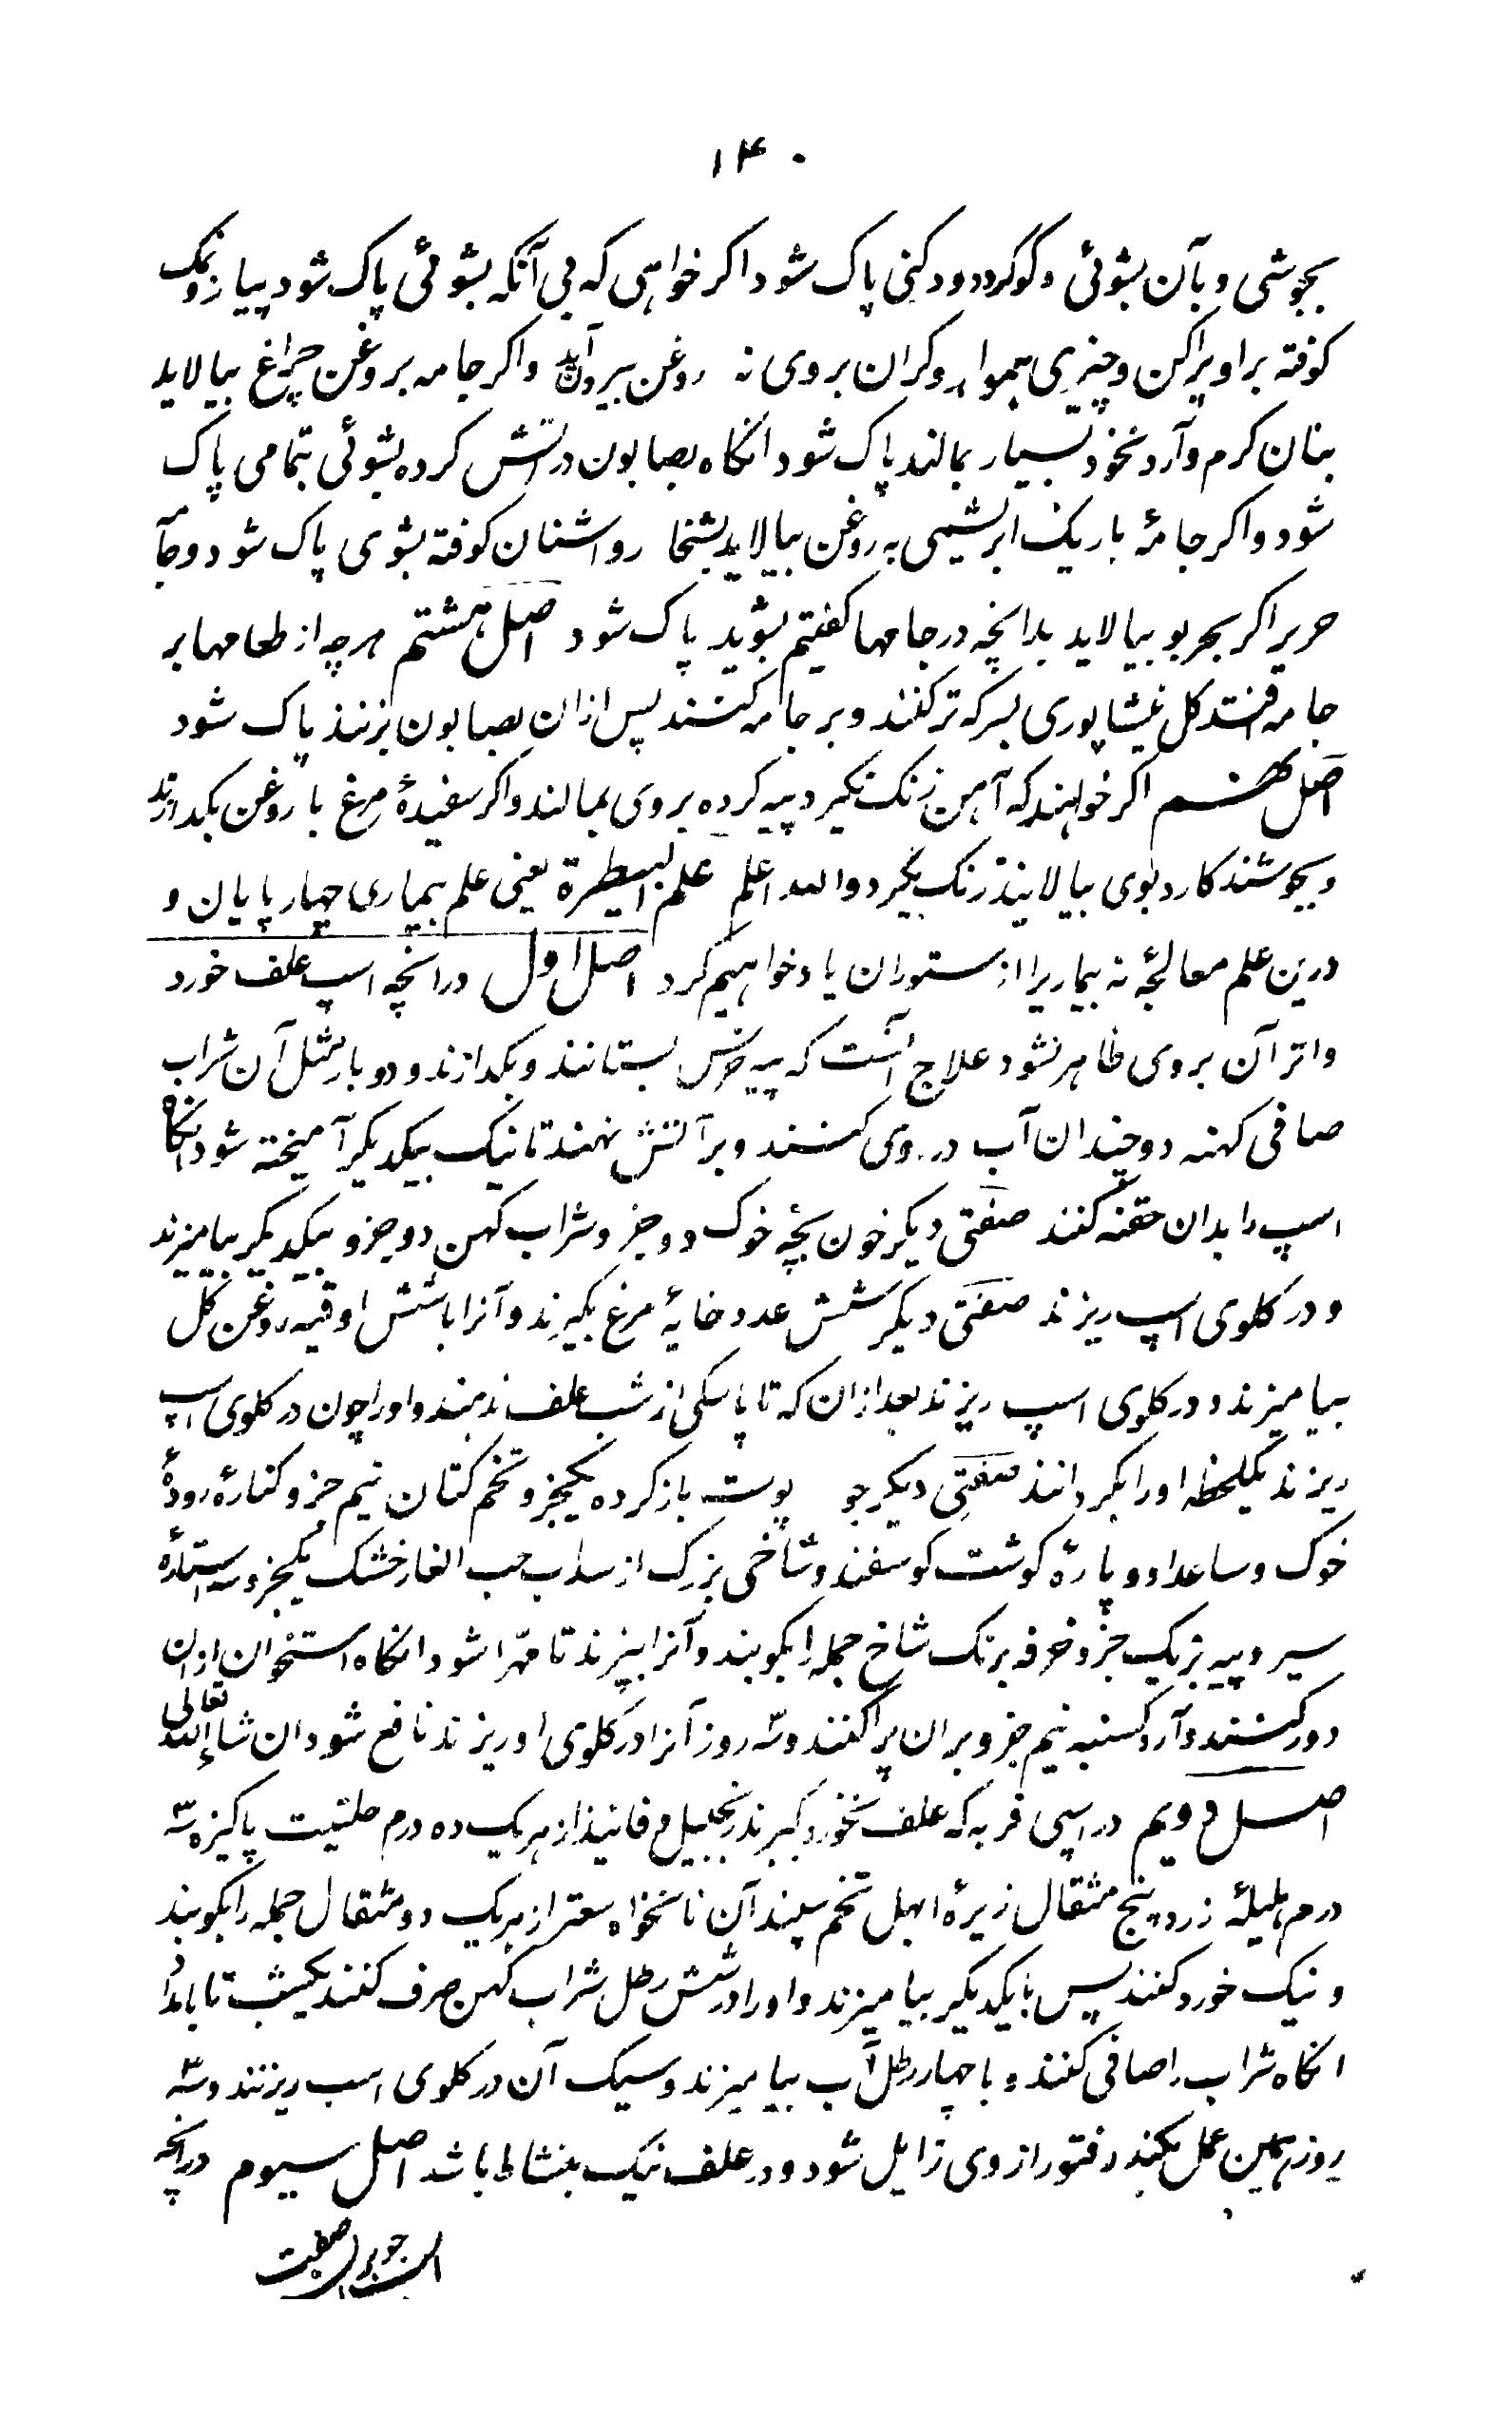 ۱۴۰
بجوشی و بآن بشوئی و کوکرد دود کنی پاک شود اکر خواهی که بی آنکه بشوئی پاک شود پیاز ونمک
کوفته بر او پراکن و چیزی هموار وکران بروی نه روغن بیرون آید واکر جامه بروغن چراغ بیالاید
بنان کرم وآرد نخود بسیار بمالند پاک شود انکاه بصابون در آتش کرده بشوئی بتمامی پاک
شود واکر جامۀ باریک ابریشمی به روغن بیالاید بشنخار واشنان کوفته بشوی پاک شود وجامۀ
حریر اکر بچربو بیالاید بدانچه در جامها کفتیم بشوید پاک شود اصل هشتم هرچه از طعامها بر
جامه افتد کل نیشاپوری بسرکه تر کنند و بر جامه کنند پس ازان بصابون بزنند پاک شود
اصل نهم اکر خواهند که آهن زنک نکیرد پیه کرده بروی بمالند واکر سفیدۀ مرغ با روغن بکدازند
و بجوشند کارد بوی بیالایند زنک نکیرد والله اعلم علم البیطرة یعنی علم بیماری چهارپایان و
درین علم معالجۀ نه بیماریرا از ستوران یاد خواهیم کرد اصل اول در انچه اسپ علف خورد
واثر آن بروی ظاهر نشود علاج آنست که پیه خرس بستانند و بکدازند و دو بار مثل آن شراب
صافی کهنه دوچندان آب در وی کنند و برآتش نهند تا نیک بیکدیکر آمیخته شود انکاه
اسپ را بدان حقنه کنند صفتی دیکر خون بچۀ خوک دو جزو شراب کهن دو جزو بیکدیکر بیامیزند
و در کلوی اسپ ریزند صفتی دیکر شش عدد خایۀ مرغ بکیرند وآنرا باشش اوقیه روغن کل
بیامیزند و در کلوی اسپ ریزند بعد ازان که تا پاسکی از شب علف ندهند و اورا چون در کلوی اسپ
ریزند یکلحظه اورا بکردانند صفتی دیکر جو پوست باز کرده یکجزو تخم کتان نیم جزو کنارۀ رودۀ
خوک و ساعد او و پارۀ کوشت کوسفند و شاخی بزرک از سداب حب الغار خشک یکجزو سه استارۀ
سیر و پیه بز یک جزو خرفه بزنک شاخ جمله را بکوبند وآنرا بپزند تا مهرا شود انکاه استخوان ازان
دور کنند وآرد کسنبه نیم جزو بران پراکنند وسه روز آنرا در کلوی او ریزند نافع شود ان شاء الله تعالی
اصل دویم در اسپی فربه که علف نخورد بکیرند زنجبیل و فانیذ از هریک ده درم حلتیت پاکیزه سه
درم هلیلۀ زرد پنج مثقال زیرۀ ابهل تخم سپندان نانخواه سعتر از هریک دو مثقال جمله را بکوبند
و نیک خورد کنند پس بایکدیکر بیامیزند و اورا در شش رطل شراب کهن صرف کنند یکشب تا بامداد
انکاه شراب را صافی کنند و با چهار رطل آب بیامیزند و سیک آن در کلوی اسب ریزند وسه
روز همین عمل بکند فتور از وی زایل شود و در علف نیک بنشاط باشد اصل سیوم در انچه